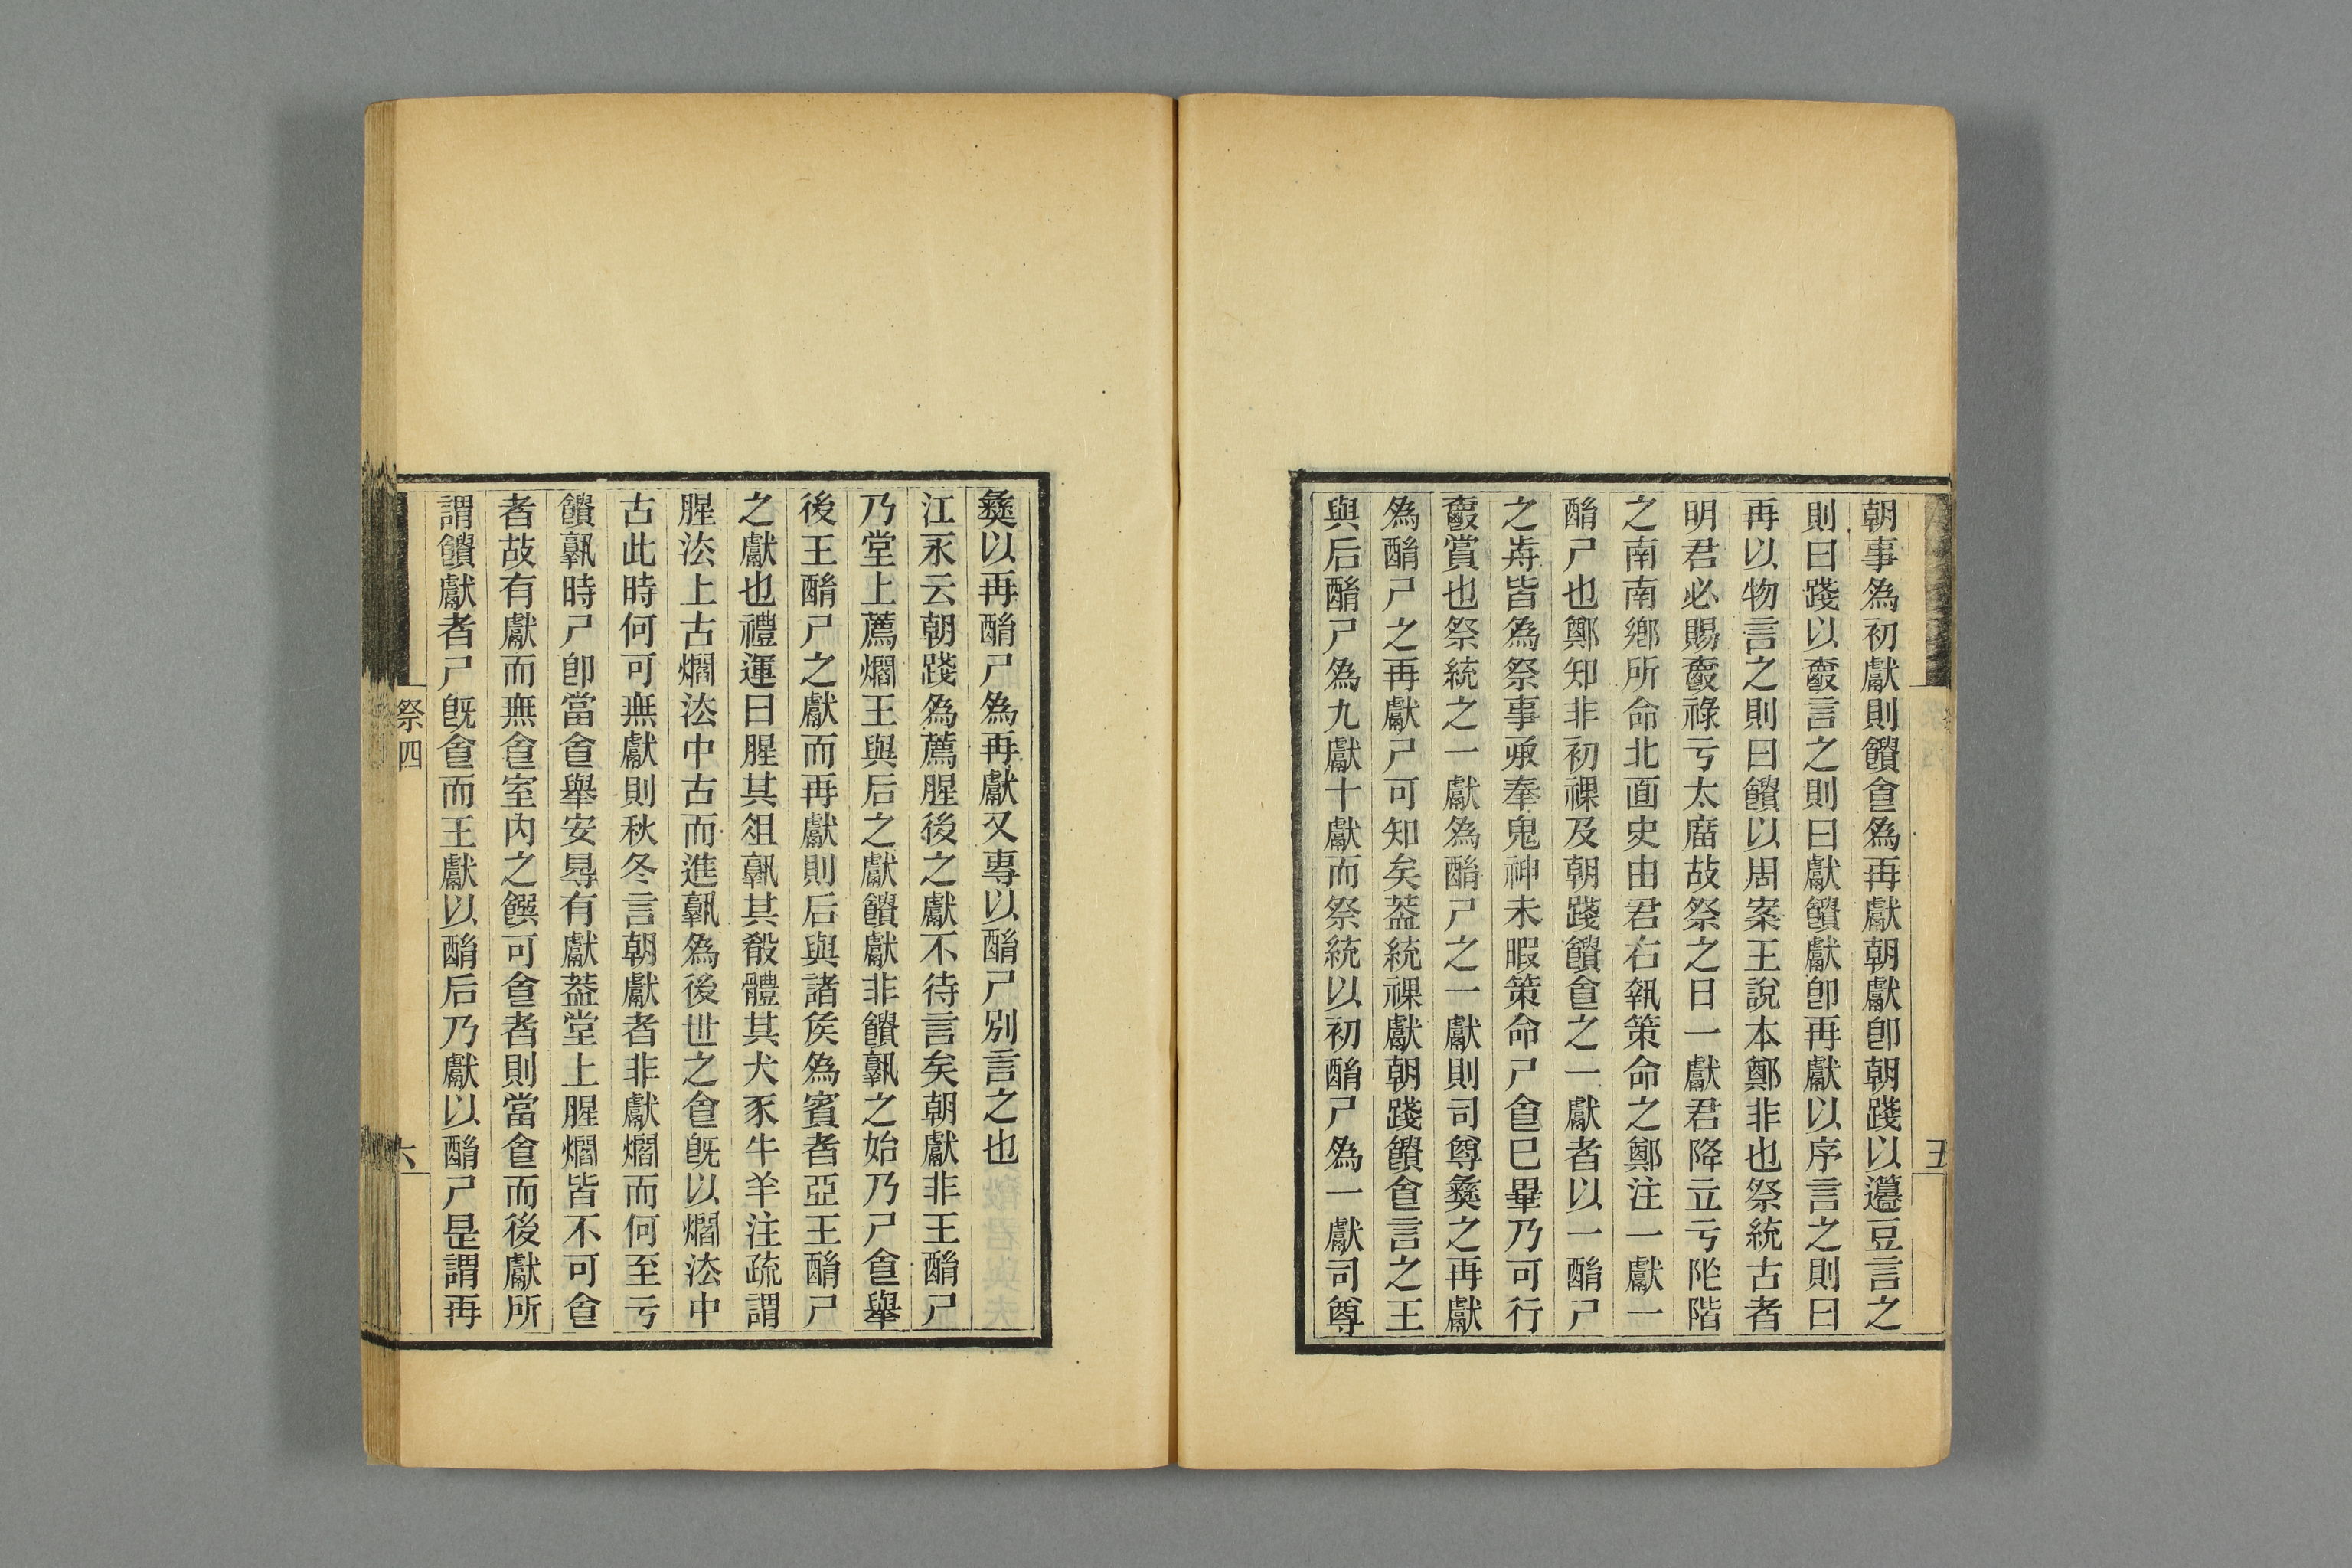 朝事為初獻則饋食為再獻朝獻卽朝踐以籩豆言之
則曰踐以爵言之則曰獻饋獻卽再獻以序言之則曰
再以物言之則曰饋以周案王說本鄭非也祭統古者
明君必賜爵祿亏太廟故祭之日一獻君降立亏阼階
之南南鄉所命北面史由君右執策命之鄭注一獻一
酳尸也鄭知非初祼及朝踐饋食之一獻者以一酳尸
之歬皆為祭事承奉鬼神未暇策命尸食已畢乃可行
爵賞也祭統之一獻為酳尸之一獻則司尊彝之再獻
為酳尸之再獻尸可知矣葢統祼獻朝踐饋食言之王
與后酳尸為九獻十獻而祭統以初酳尸為一獻司尊
彝以再酳尸為再獻又專以酳尸別言之也
江永云朝踐為薦腥後之獻不待言矣朝獻非王酳尸
乃堂上薦爓王與后之獻饋獻非饋孰之始乃尸食舉
後王酳尸之獻而再獻則后與諸矦為賓者亞王酳尸
之獻也禮運曰腥其俎孰其殽體其犬豕牛羊注疏謂
腥法上古爓法中古而進孰為後世之食旣以爓法中
古此時何可無獻則秋冬言朝獻者非獻爓而何至亏
饋孰時尸卽當食舉安㝵有獻葢堂上腥爓皆不可食
者故有獻而無食室內之饌可食者則當食而後獻所
謂饋獻者尸旣食而王獻以酳后乃獻以酳尸是謂再
祭四
六
五